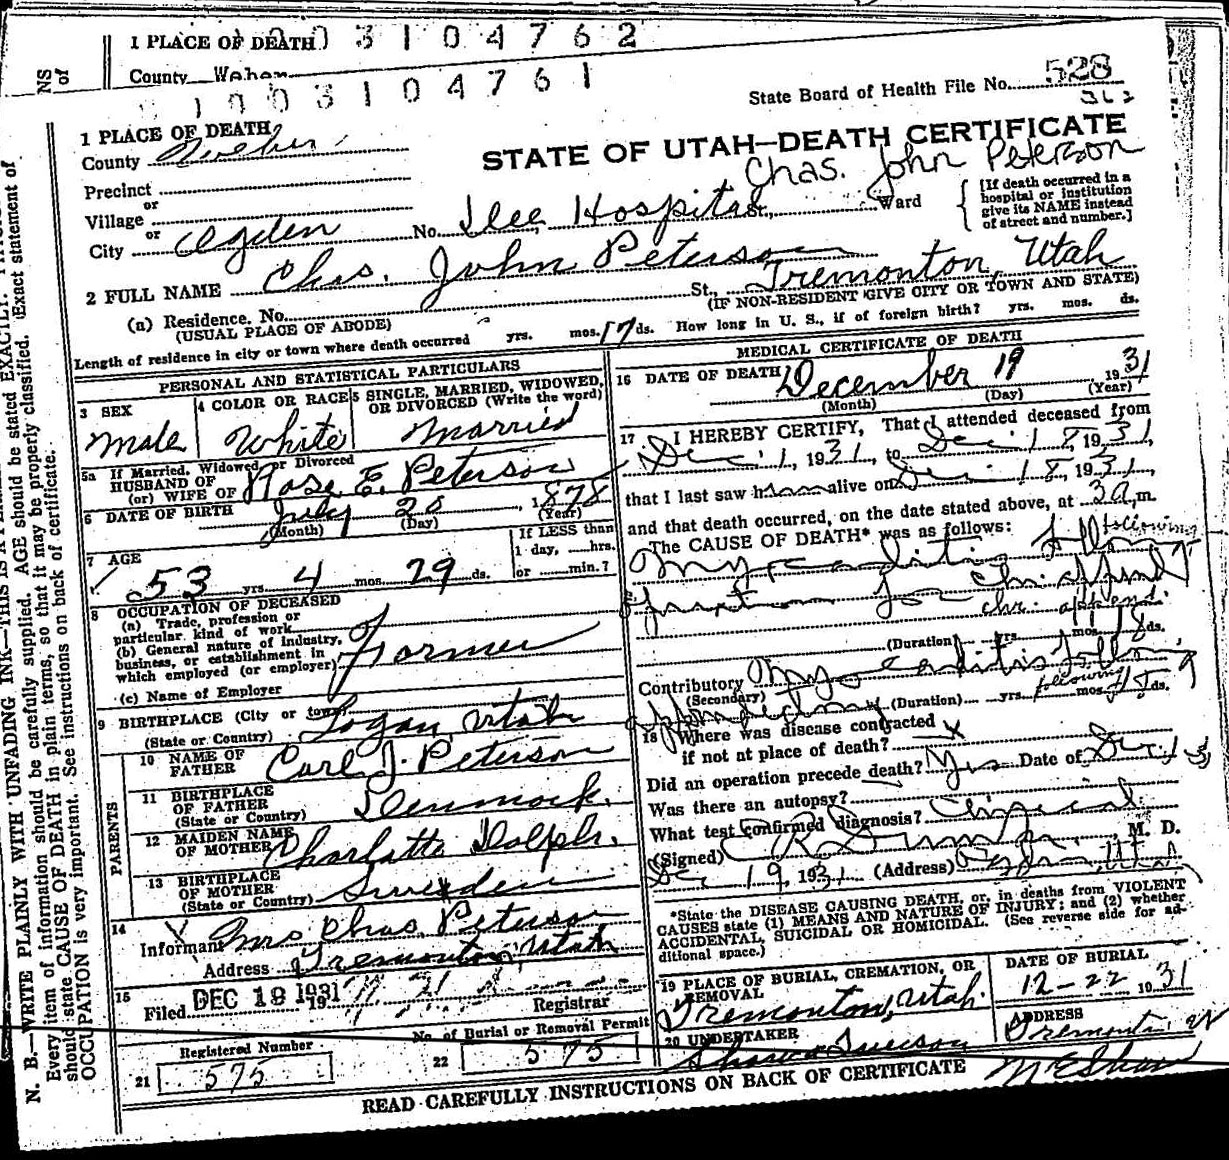 1 PLACE OF DEATH 0 3 1 0 4 7 6 2
County Weber
NS
of
1 0 0 3 1 0 4 7 6 1
State Board of Health File No. 528
362
1 PLACE OF DEATH
STATE OF UTAH—DEATH CERTIFICATE
County Weber
Chas. John Peterson
Precinct
or
Village
or
City Ogden No. Dee Hospital St., Ward
[If death occurred in a
hospital or institution
give its NAME instead
of street and number.]
2 FULL NAME Chas. John Peterson
(a) Residence. No. St., Tremonton, Utah
(USUAL PLACE OF ABODE) (IF NON-RESIDENT GIVE CITY OR TOWN AND STATE)
Length of residence in city or town where death occurred yrs. mos. 17 ds. How long in U. S., if of foreign birth? yrs. mos. ds.
PERSONAL AND STATISTICAL PARTICULARS
3 SEX 4 COLOR OR RACE 5 SINGLE, MARRIED, WIDOWED, OR DIVORCED (Write the word)
Male White Married
5a If Married, Widowed or Divorced
HUSBAND OF
(or) WIFE OF Rose E. Peterson
6 DATE OF BIRTH July 20, 1878
(Month) (Day) (Year)
7 AGE
53 yrs. 4 mos. 29 ds.
If LESS than
1 day, hrs.
or min.?
8 OCCUPATION OF DECEASED
(a) Trade, profession or
particular kind of work
(b) General nature of industry,
business, or establishment in
which employed (or employer) Farmer
(c) Name of Employer
9 BIRTHPLACE (City or town)
(State or Country) Logan, Utah
PARENTS
10 NAME OF
FATHER Carl J. Peterson
11 BIRTHPLACE
OF FATHER
(State or Country) Denmark
12 MAIDEN NAME
OF MOTHER Charlotte Dolph.
13 BIRTHPLACE
OF MOTHER
(State or Country) Sweden
14
Informant Mrs Chas Peterson
Address Tremonton, Utah
15
Filed DEC 19 1931 19 Registrar
No. of Burial or Removal Permit
Registered Number
21 575
22 575
MEDICAL CERTIFICATE OF DEATH
16 DATE OF DEATH December 19 1931
(Month) (Day) (Year)
17 I HEREBY CERTIFY, That I attended deceased from
Dec. 1, 1931, to Dec. 18 1931,
that I last saw him alive on Dec. 18, 1931,
and that death occurred, on the date stated above, at 3 a m.
The CAUSE OF DEATH* was as follows:
Myocarditis following
following
for chr. append
chr. append.
(Duration) yrs. mos. 18 ds.
Contributory Myocarditis following
(Secondary)
appendectomy (Duration) yrs. following mos. 18 ds.
18 Where was disease contracted
if not at place of death? X
Did an operation precede death? Yes Date of Dec. 1-31
Was there an autopsy?
What test confirmed diagnosis? Clinical
(Signed) M. D.
Dec 19, 1931 (Address) Ogden, Utah
*State the DISEASE CAUSING DEATH, or, in deaths from VIOLENT
CAUSES state (1) MEANS AND NATURE OF INJURY; and (2) whether
ACCIDENTAL, SUICIDAL OR HOMICIDAL. (See reverse side for ad-
ditional space.)
19 PLACE OF BURIAL, CREMATION, OR
REMOVAL
Tremonton, Utah.
DATE OF BURIAL
12-22 1931
20 UNDERTAKER
ADDRESS
Tremonton, U
READ CAREFULLY INSTRUCTIONS ON BACK OF CERTIFICATE
M E Shaw
N. B.—WRITE PLAINLY WITH UNFADING INK—THIS IS A
Every item of information should be carefully supplied. AGE should be stated EXACTLY.
should state CAUSE OF DEATH in plain terms, so that it may be properly classified. Exact statement of
OCCUPATION is very important. See instructions on back of certificate.